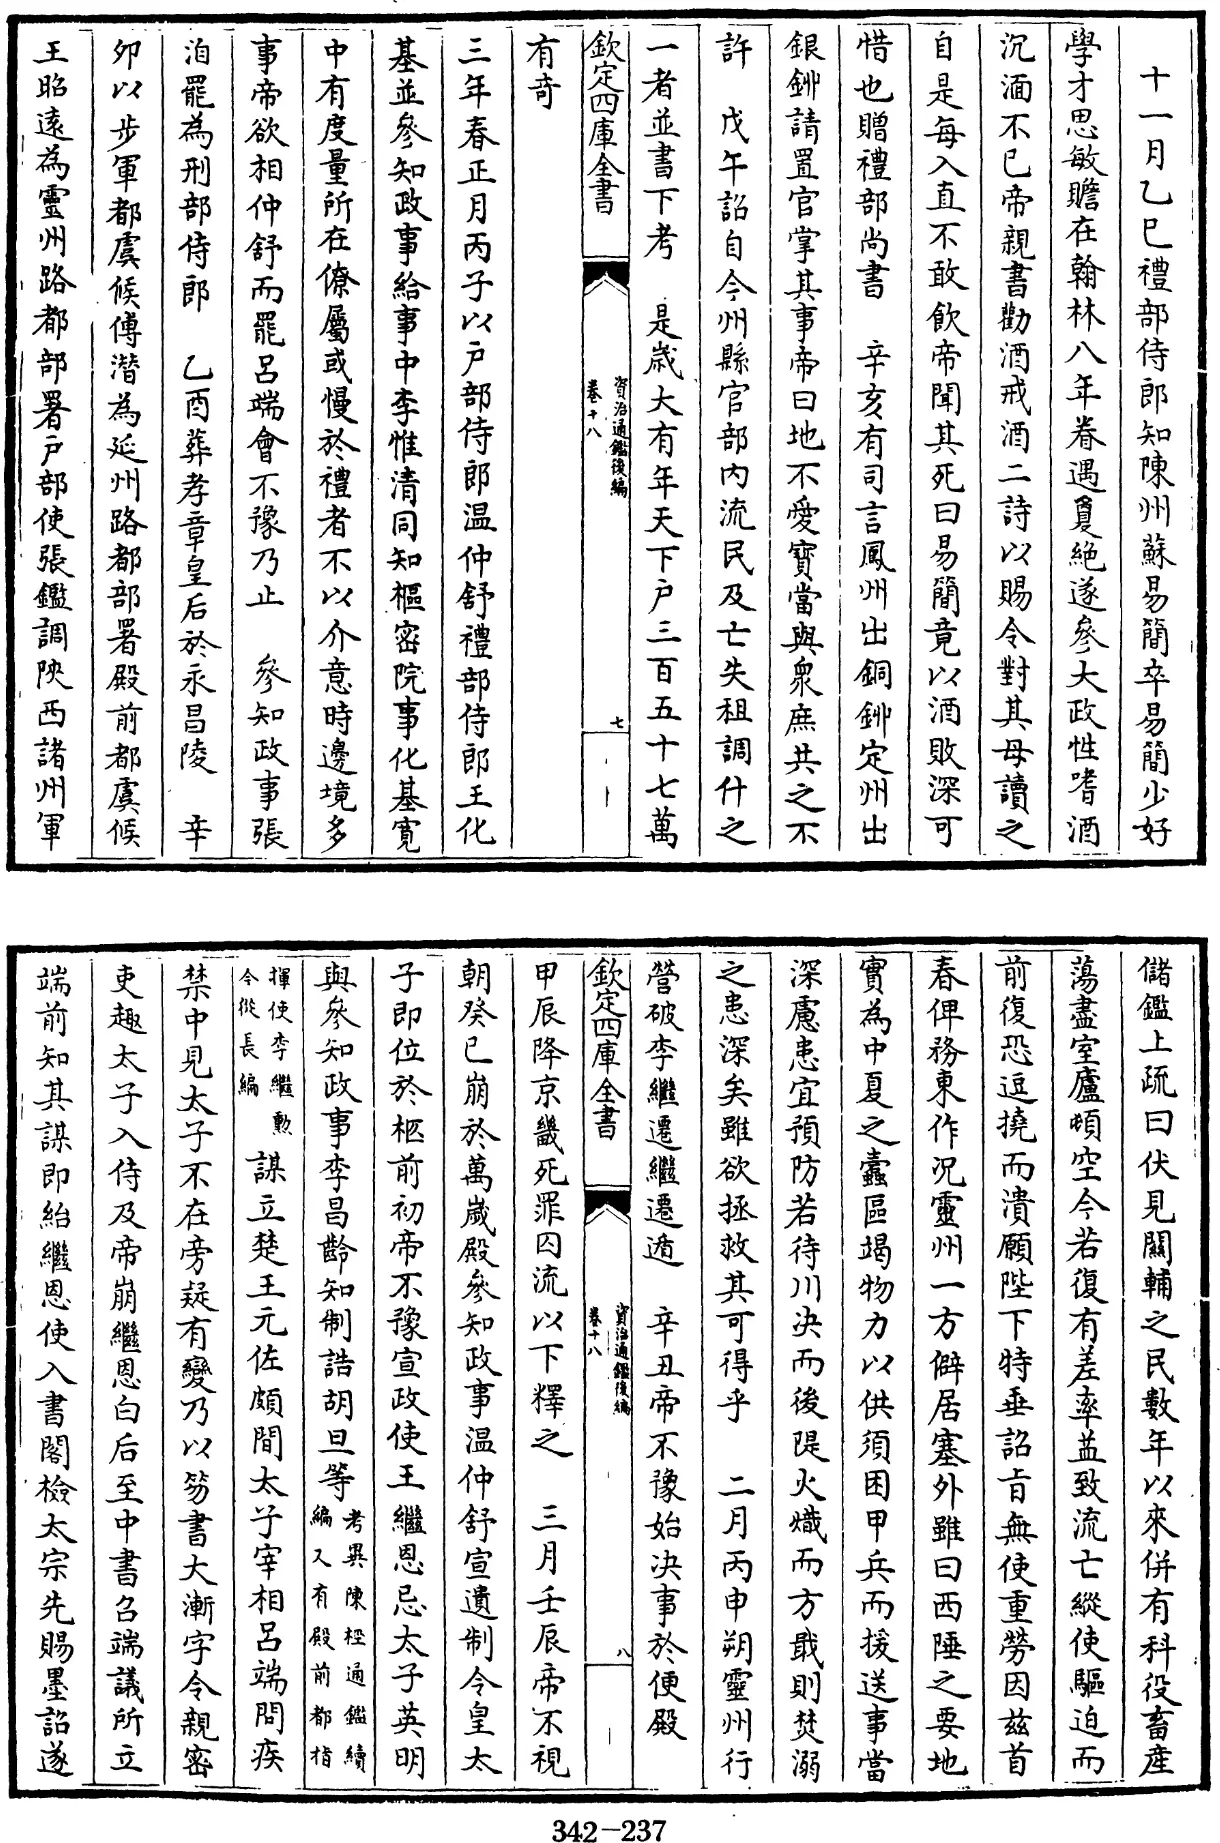 十一月乙巳禮部侍郎知陳州蘇易簡卒易簡少好
學才思敏贍在翰林八年眷遇敻絶遂參大政性嗜酒
沉湎不已帝親書勸酒戒酒二詩以賜令對其母讀之
自是每入直不敢飲帝聞其死曰易簡竟以酒敗深可
惜也贈禮部尚書　辛亥有司言鳳州出銅鉚定州出
銀鉚請置官掌其事帝曰地不愛寶當與衆庶共之不
許　戊午詔自今州縣官部内流民及亡失租調什之
一者並書下考　是嵗大有年天下户三百五十七萬
欽定四庫全書
資治通鑑後編
卷十八
七
有奇
三年春正月丙子以户部侍郎温仲舒禮部侍郎王化
基並參知政事給事中李惟清同知樞密院事化基寛
中有度量所在僚屬或慢於禮者不以介意時邊境多
事帝欲相仲舒而罷吕端會不豫乃止　參知政事張
洎罷為刑部侍郎　乙酉葬孝章皇后於永昌陵　辛
夘以步軍都虞候傅潛為延州路都部署殿前都虞候
王昭遠為靈州路都部署户部使張鑑調陜西諸州軍
儲鑑上疏曰伏見關輔之民數年以來併有科役畜產
蕩盡室廬頓空今若復有差率益致流亡縱使驅迫而
前復恐逗撓而潰願陛下特垂詔㫖無使重勞因兹首
春俾務東作况靈州一方僻居塞外雖曰西陲之要地
實為中夏之蠧區竭物力以供須困甲兵而援送事當
深慮患宜預防若待川决而後隄火熾而方戢則焚溺
之患深矣雖欲拯救其可得乎　二月丙申朔靈州行
營破李繼遷繼遷遁　辛丑帝不豫始决事於便殿
欽定四庫全書
資治通鑑後編
卷十八
八
甲辰降京畿死罪囚流以下釋之　三月壬辰帝不視
朝癸巳崩於萬嵗殿參知政事温仲舒宣遺制令皇太
子即位於柩前初帝不豫宣政使王繼恩忌太子英明
與參知政事李昌齡知制誥胡旦等考異陳桱通鑑續
編又有殿前都指
揮使李繼勲
今從長編　謀立楚王元佐頗間太子宰相吕端問疾
禁中見太子不在旁疑有變乃以笏書大漸字令親密
吏趣太子入侍及帝崩繼恩白后至中書召端議所立
端前知其謀即紿繼恩使入書閣檢太宗先賜墨詔遂
342-237